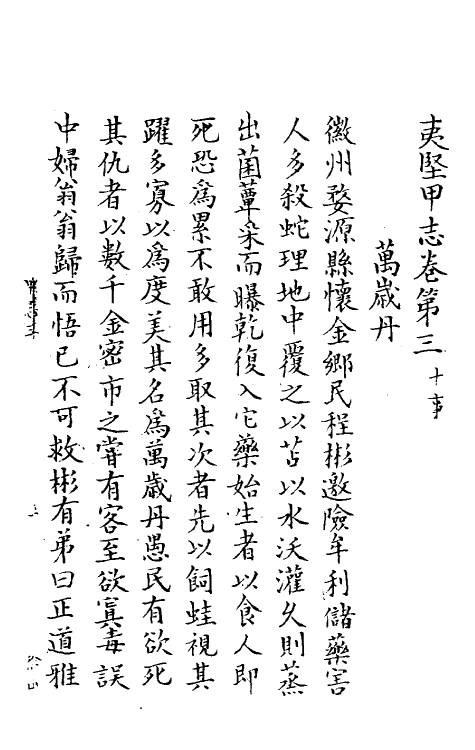 夷堅甲志卷第三 十事
萬歲丹
徽州婺源縣懷金鄉民程彬邀險牟利儲藥害
人多殺蛇理地中覆之以苫以水沃灌久則蒸
出菌蕈采而曝乾復入它藥始生者以食人即
死恐爲累不敢用多取其次者先以飼蛙視其
躍多寡以爲度美其名爲萬歲丹愚民有欲死
其仇者以數千金密市之甞有客至欲寘毒誤
中婦翁翁歸而悟已不可救彬有弟曰正道雅